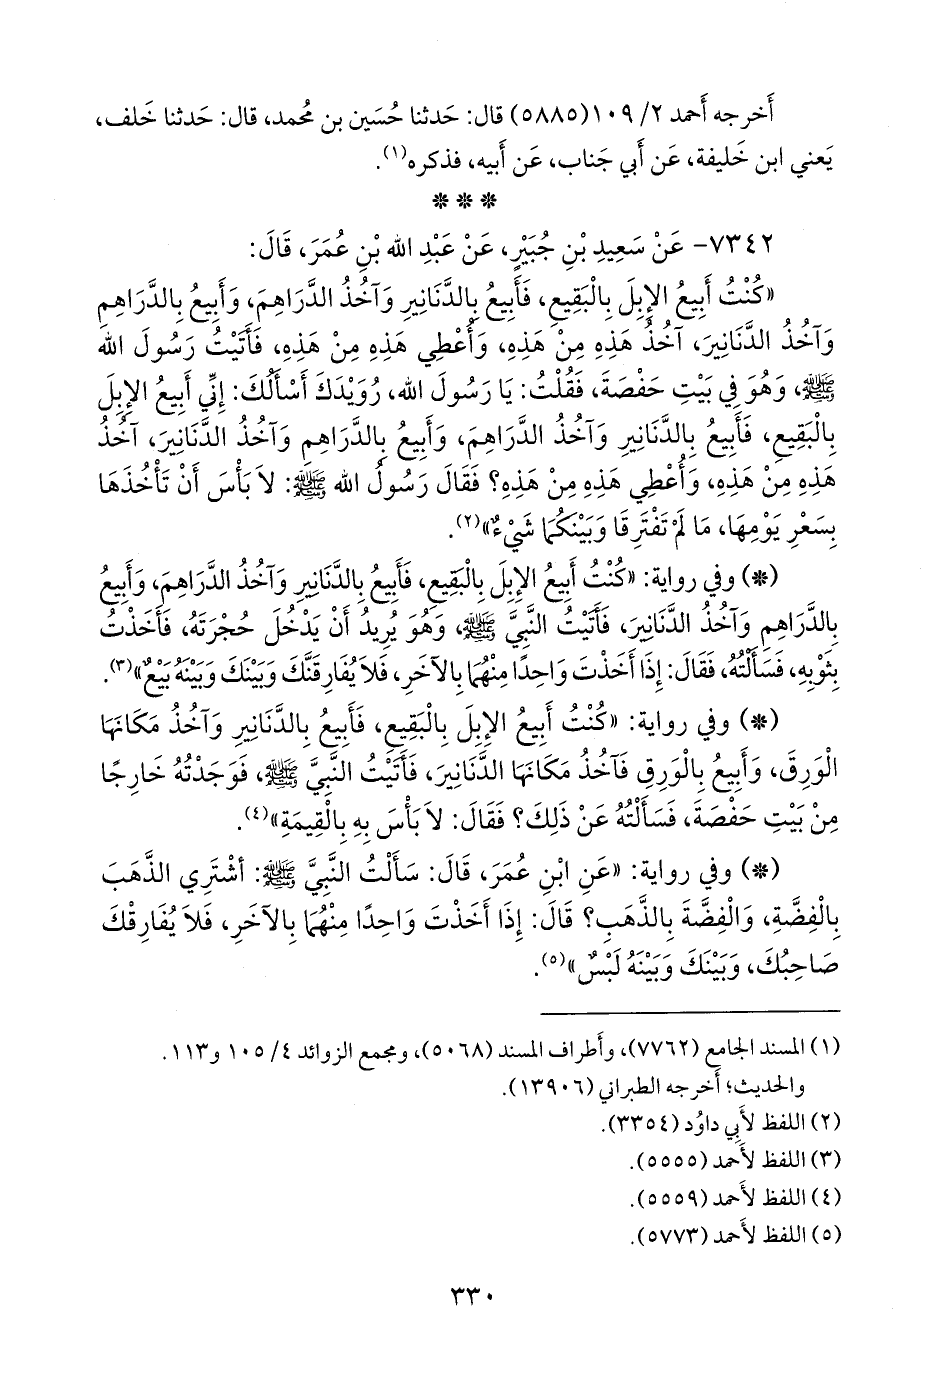 أَخرجه أَحمد ٢/ ١٠٩(٥٨٨٥) قال: حَدثنا حُسَين بن مُحمد، قال: حَدثنا خَلف،
يَعني ابن خَليفة، عَن أَبي جَناب، عَن أَبيه، فذكره(١).
* * *
٧٣٤٢- عَنْ سَعِيدِ بْنِ جُبَيْرٍ، عَنْ عَبْدِ الله بْنِ عُمَرَ، قَالَ:
«كُنْتُ أَبِيعُ الإِبِلَ بِالْبَقِيعِ، فَأَبِيعُ بِالدَّنَانِيرِ وَآخُذُ الدَّرَاهِمَ، وَأَبِيعُ بِالدَّرَاهِمِ
وَآخُذُ الدَّنَانِيرَ، آخُذُ هَذِهِ مِنْ هَذِهِ، وَأُعْطِي هَذِهِ مِنْ هَذِهِ، فَأَتَيْتُ رَسُولَ الله
ﷺ، وَهُوَ فِي بَيْتِ حَفْصَةَ، فَقُلْتُ: يَا رَسُولَ الله، رُوَيْدَكَ أَسْأَلُكَ: إِنِّي أَبِيعُ الإِبِلَ
بِالْبَقِيعِ، فَأَبِيعُ بِالدَّنَانِيرِ وَآخُذُ الدَّرَاهِمَ، وَأَبِيعُ بِالدَّرَاهِمِ وَآخُذُ الدَّنَانِيرَ، آخُذُ
هَذِهِ مِنْ هَذِهِ، وَأُعْطِي هَذِهِ مِنْ هَذِهِ؟ فَقَالَ رَسُولُ الله ﷺ: لاَ بَأْسَ أَنْ تَأْخُذَهَا
بِسَعْرِ يَوْمِهَا، مَا لَمْ تَفْتَرِقَا وَبَيْنَكُمَا شَيْءٌ»(٢).
(*) وفي رواية: «كُنْتُ أَبِيعُ الإِبِلَ بِالْبَقِيعِ، فَأَبِيعُ بِالدَّنَانِيرِ وَآخُذُ الدَّرَاهِمَ، وَأَبِيعُ
بِالدَّرَاهِمِ وَآخُذُ الدَّنَانِيرَ، فَأَتَيْتُ النَّبِيَّ ﷺ، وَهُوَ يُرِيدُ أَنْ يَدْخُلَ حُجْرَتَهُ، فَأَخَذْتُ
بِثَوْبِهِ، فَسَأَلْتُهُ، فَقَالَ: إِذَا أَخَذْتَ وَاحِدًا مِنْهُمَا بِالآخَرِ، فَلاَ يُفَارِقَنَّكَ وَبَيْنَكَ وَبَيْنَهُ بَيْعٌ»(٣).
(*) وفي رواية: «كُنْتُ أَبِيعُ الإِبِلَ بِالْبَقِيعِ، فَأَبِيعُ بِالدَّنَانِيرِ وَآخُذُ مَكَانَهَا
الْوَرِقَ، وَأَبِيعُ بِالْوَرِقِ فَآخُذُ مَكَانَهَا الدَّنَانِيرَ، فَأَتَيْتُ النَّبِيَّ ﷺ، فَوَجَدْتُهُ خَارِجًا
مِنْ بَيْتِ حَفْصَةَ، فَسَأَلْتُهُ عَنْ ذَلِكَ؟ فَقَالَ: لاَ بَأْسَ بِهِ بِالْقِيمَةِ»(٤).
(*) وفي رواية: «عَنِ ابْنِ عُمَرَ، قَالَ: سَأَلْتُ النَّبِيَّ ﷺ: أَشْتَرِي الذَّهَبَ
بِالْفِضَّةِ، وَالْفِضَّةَ بِالذَّهَبِ؟ قَالَ: إِذَا أَخَذْتَ وَاحِدًا مِنْهُمَا بِالآخَرِ، فَلاَ يُفَارِقْكَ
صَاحِبُكَ، وَبَيْنَكَ وَبَيْنَهُ لَبْسٌ»(٥).
(١) المسند الجامع (٧٧٦٢)، وأَطراف المسند (٥٠٦٨)، ومجمع الزوائد ٤/ ١٠٥ و١١٣.
والحديث؛ أَخرجه الطبراني (١٣٩٠٦).
(٢) اللفظ لأَبي داوُد (٣٣٥٤).
(٣) اللفظ لأَحمد (٥٥٥٥).
(٤) اللفظ لأَحمد (٥٥٥٩).
(٥) اللفظ لأَحمد (٥٧٧٣).
٣٣٠